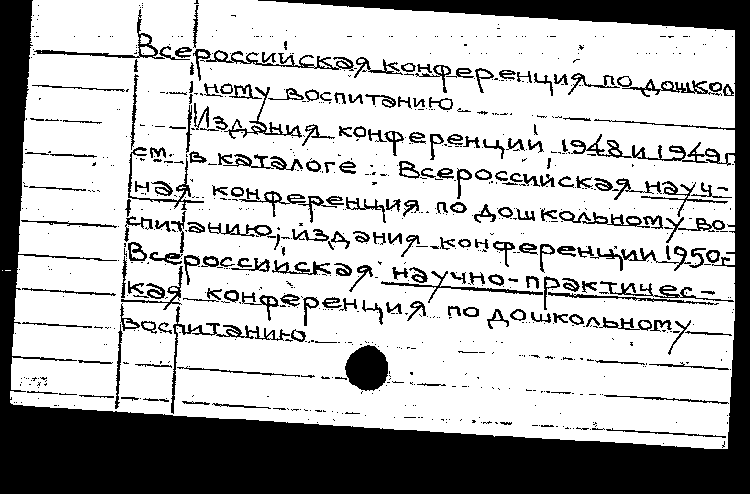 Всероссийская конференция по дошкол
ному воспитанию.
Издания конференций 1948 и 1949г
см. в каталоге: Всероссийская науч-
ная конференция по дошкольному во-
спитанию; издания конференции 1950г-
Всероссийская научно-практичес-
кая конференция по дошкольному
воспитанию.